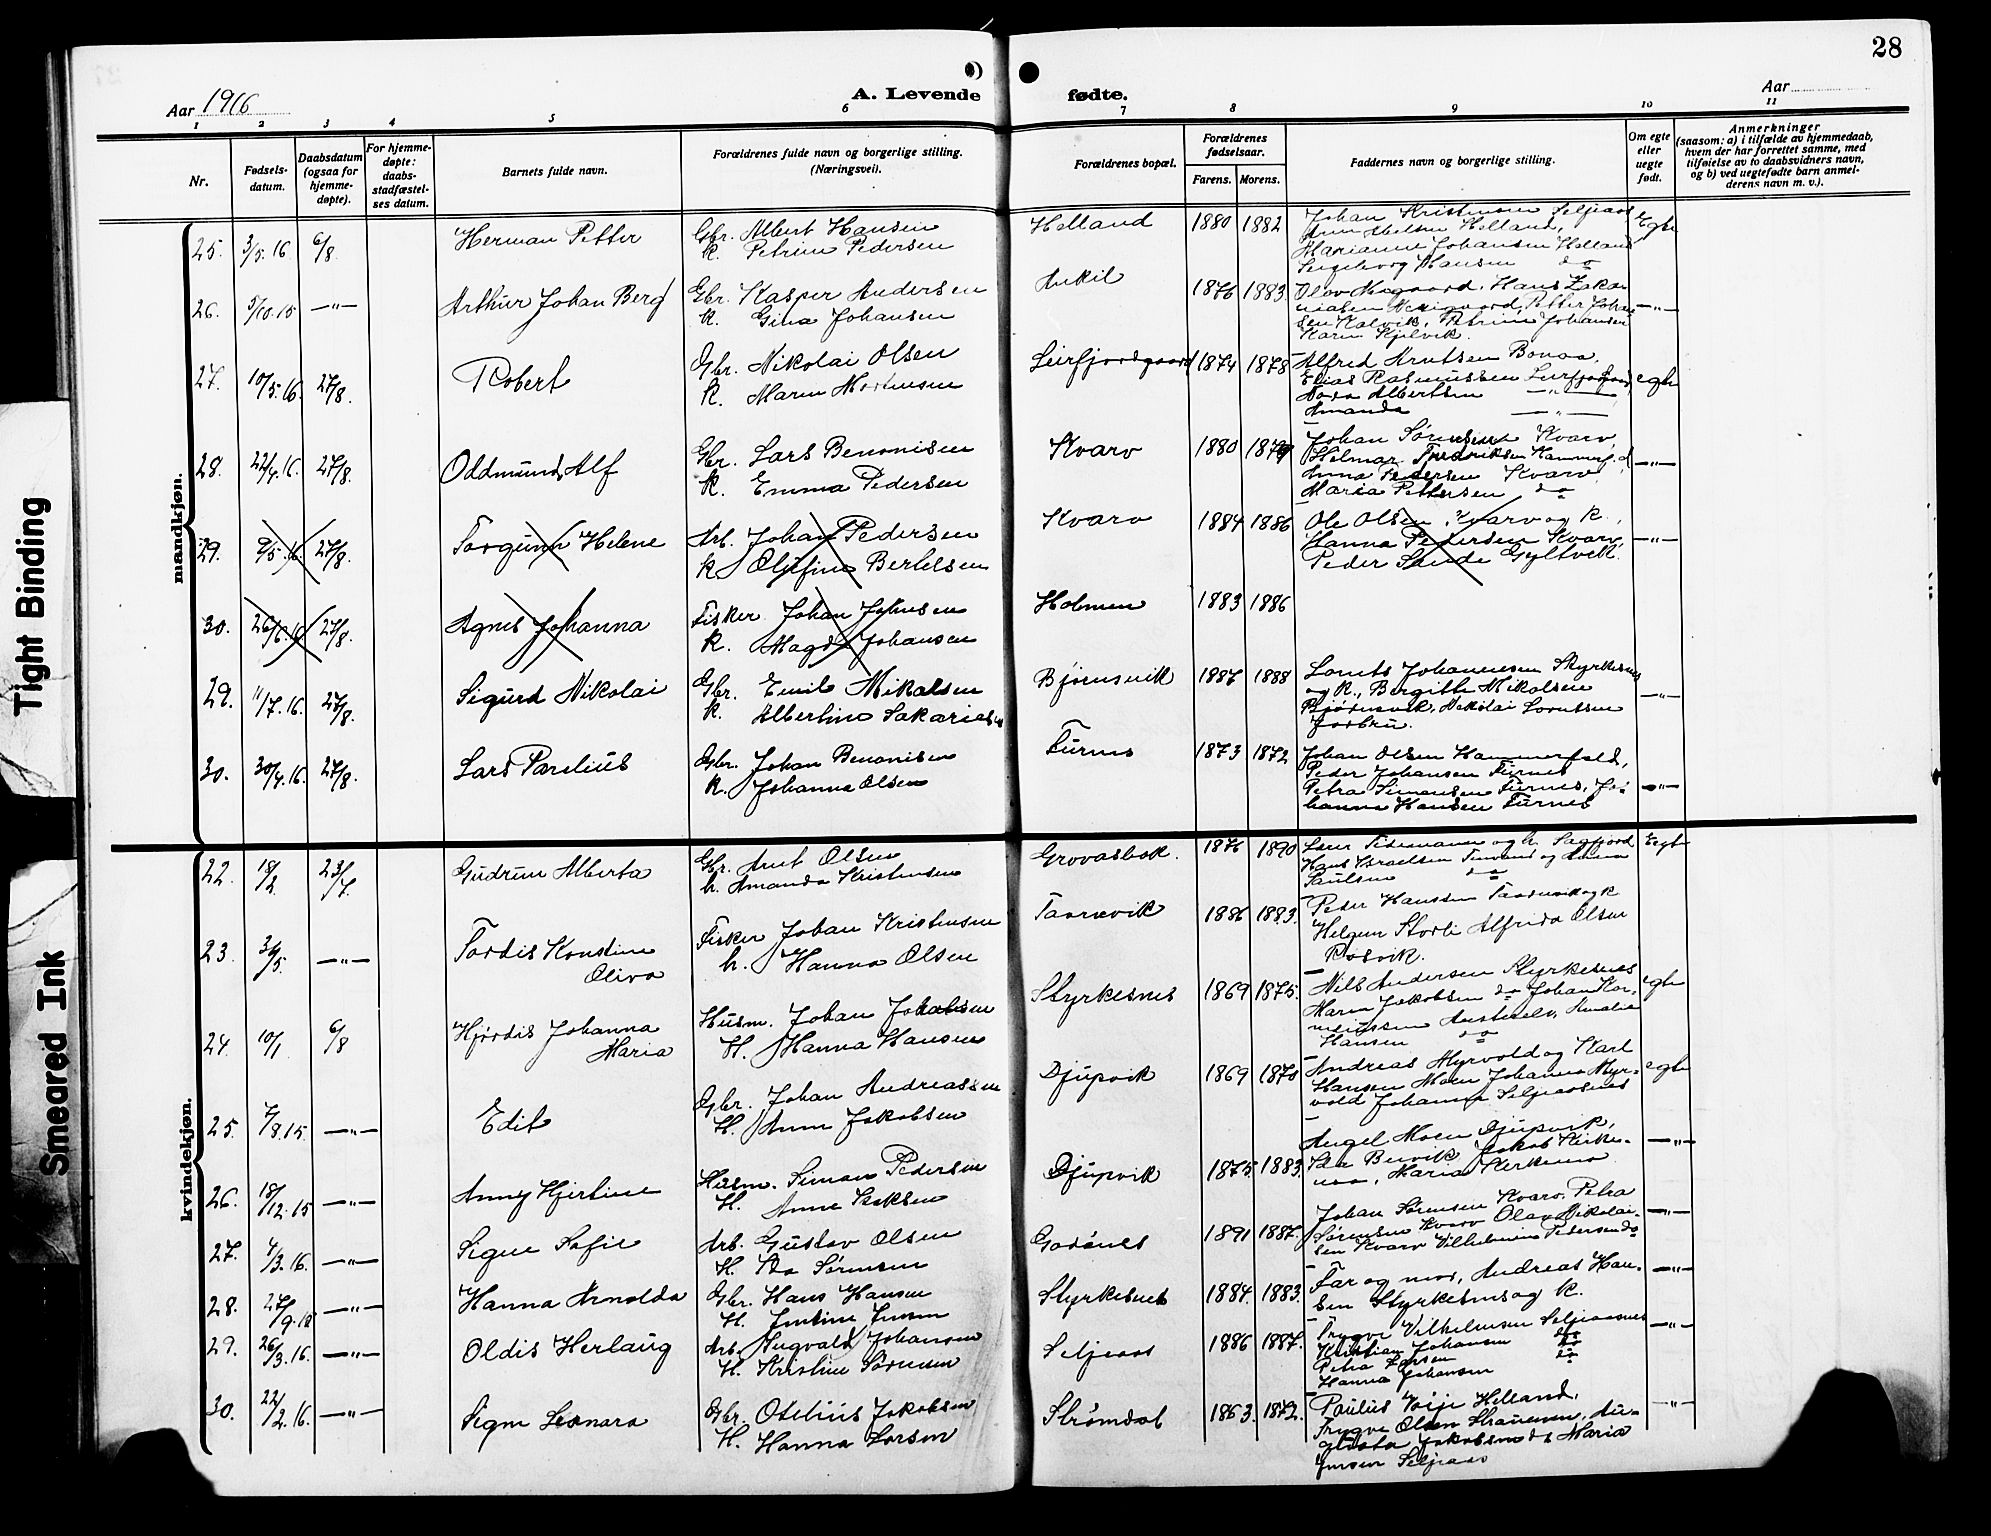 28
Aar 1916
A. Levende fødte.
Aar
1 2 3 4 5 6 7 8 9 10 11
Nr.
Fødsels-datum.
Daabsdatum (ogsaa for hjemme-døpte).
For hjemme-døpte: daabs-stadfæstel-ses datum.
Barnets fulde navn.
Forældrenes fulde navn og borgerlige stilling. (Næringsvei).
Forældrenes bopæl.
Forældrenes fødselsaar.
Farens. Morens.
Faddernes navn og borgerlige stilling.
Om egte eller uegte født.
Anmerkninger (saasom: a) i tilfælde av hjemmedaab, hvem der har forrettet samme, med tilføielse av to daabsvidners navn, og b) ved uegtefødte barn anmel-derens navn m. v.).
mandkjøn.
25. 3/5.16 6/8. Herman Petter Gbr. Albert Hansen Helland 1880 1882 Johan Kristensen Seljeaas Egte
K. Petrine Pedersen Helland,
Marianne Johansen Helland
Ingeborg Hansen do
26. 5/10.15 —"— Arthur Johan Berg Gbr. Kasper Andersen 1876 1883 Olav Hans Zaka- —"—
K. Gina Johansen Petter Johan-
sen Kalvik, Petrine Johansen
Karen Kjelvik.
27. 10/5.16 27/8. Robert Gbr. Nikolai Olsen Leirfjordgaard 1874 1878 Alfred Knutsen Bonaa. egte
K. Maren Mortensen Elias Rasmussen
Albertsen —"—
Amanda —"—
28. 22/4.16. 27/8. Oddmund Alf Gbr. Lars Benonisen Kvarv 1880 1879 Johan Sørensen Kvarv, —"—
K. Emma Pedersen Hilmar Fredriksen
Anna Pedersen Kvarv
Maria Pettersen do
29. 9/5.16. 27/8. Torgunn Helene Arb. Johan Pedersen Kvarv 1884 1886 Ole Olsen, Kvarv og K., —"—
K. Olufine Bertelsen Hanna Pedersen Kvarv,
Peder Sande Gyltvik.
30. 26/6.16 27/8. Agnes Johanna Fisker Johan Johnsen Holmen 1883 1886
K. Magda Johansen
29. 11/7.16. 27/8. Sigurd Nikolai Gbr. Emil Mikalsen Bjørnsvik 1887 1888 Johannesen Styrkesnes —"—
K. Albertine Sakariesen og K., Bergithe Mikalsen
Bjørnsvik, Nikolai
30. 30/4.16. 27/8. Lars Parelius Gbr. Johan Benonisen Furnes 1873 1872 Johan Olsen Hammerfald,
K. Johanna Olsen Peder Johansen Furnes
Petra Simonsen Furnes, Jo- —"—
hanna Hansen Furnes
kvindekjøn.
22. 18/2. 23/7. Gudrun Alberta Gbr. Arnt Olsen Grovasbak. 1876 1890 og h. Sagfjord Egte
h. Amanda Kristensen Hans Israelsen og
Paulsen do
23. 3/5. —"— Tordis Konstine Fisker Johan Kristensen Taarnvik 1886 1883. Peder Hanssen Taarnvik og K
Oliva h. Hanna Olsen Helgem Storli Alfrida Olsen
Rosvik.
24. 10/1 6/8 Hjørdis Johanna Husm. Johan Jakobsen Styrkesnes 1869 1875. Nils Andersen Styrkesnes egte
Maria H. Hanna Hansen Maren Jakobsen do Johan Kor-
neliussen Amalie
Hansen do
25. 7/8.15. —"— Edit Gbr. Johan Andreassen Djupvik 1869 1870 Andreas Myrvold og Karl egte
H. Anne Jakobsen Hansen Moen Johanna Myr-
vold Johanna Seljeaasnes
26. 18/12.15 —"— Anny Hjertine Husm. Simon Pedersen Djupvik 1875. 1883. Angel Moen Djupvik, —"—
H. Anne Isaksen Jakob Kirke-
moe, Maria Kirkemo
27. 4/3.16. —"— Signe Sofie Arb. Gustav Olsen Godønes 1891 1887. Johan Sørensen Kvarv, Petra —"—
H. Ida Sørensen Sørensen Kvarv Olav Nikolai-
sen Kvarv Vilhelmine Pedersen do
28. 27/9.15 —"— Hanna Arnolda Gbr. Hans Hansen Styrkesnes 1884. 1883. Far og mor, Andreas Han- —"—
H. Justine Jensen sen Styrkesnes og K.
29. 26/3.16. —"— Oldis Herlaug Arb. Ingvald Johansen Seljeaas 1886 1887. Trygve Vilhelmsen Seljeaasnes —"—
H. Kristine Sørensen Kristian Johansen do
Petra Larsen do
Hanna Johansen do
30. 22/2.16. —"— Signe Leonara Gbr. Otelius Jakobsen Strømdal 1863. 1872. Paulus Voije Helland. —"—
H. Hanna Larsen Trygve Olsen Straumen, Au-
gusta Jakobsen do Maria
Jensen Seljeaas
Tight Binding
Smeared Ink